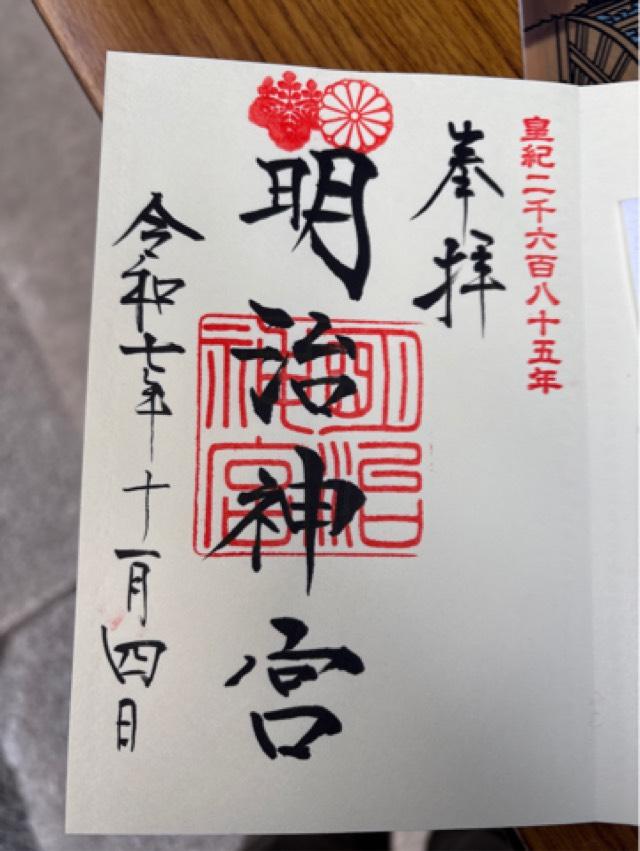 皇紀二千六百八十五年
奉拝
明治神宮
明治神宮
令和七年十一月四日